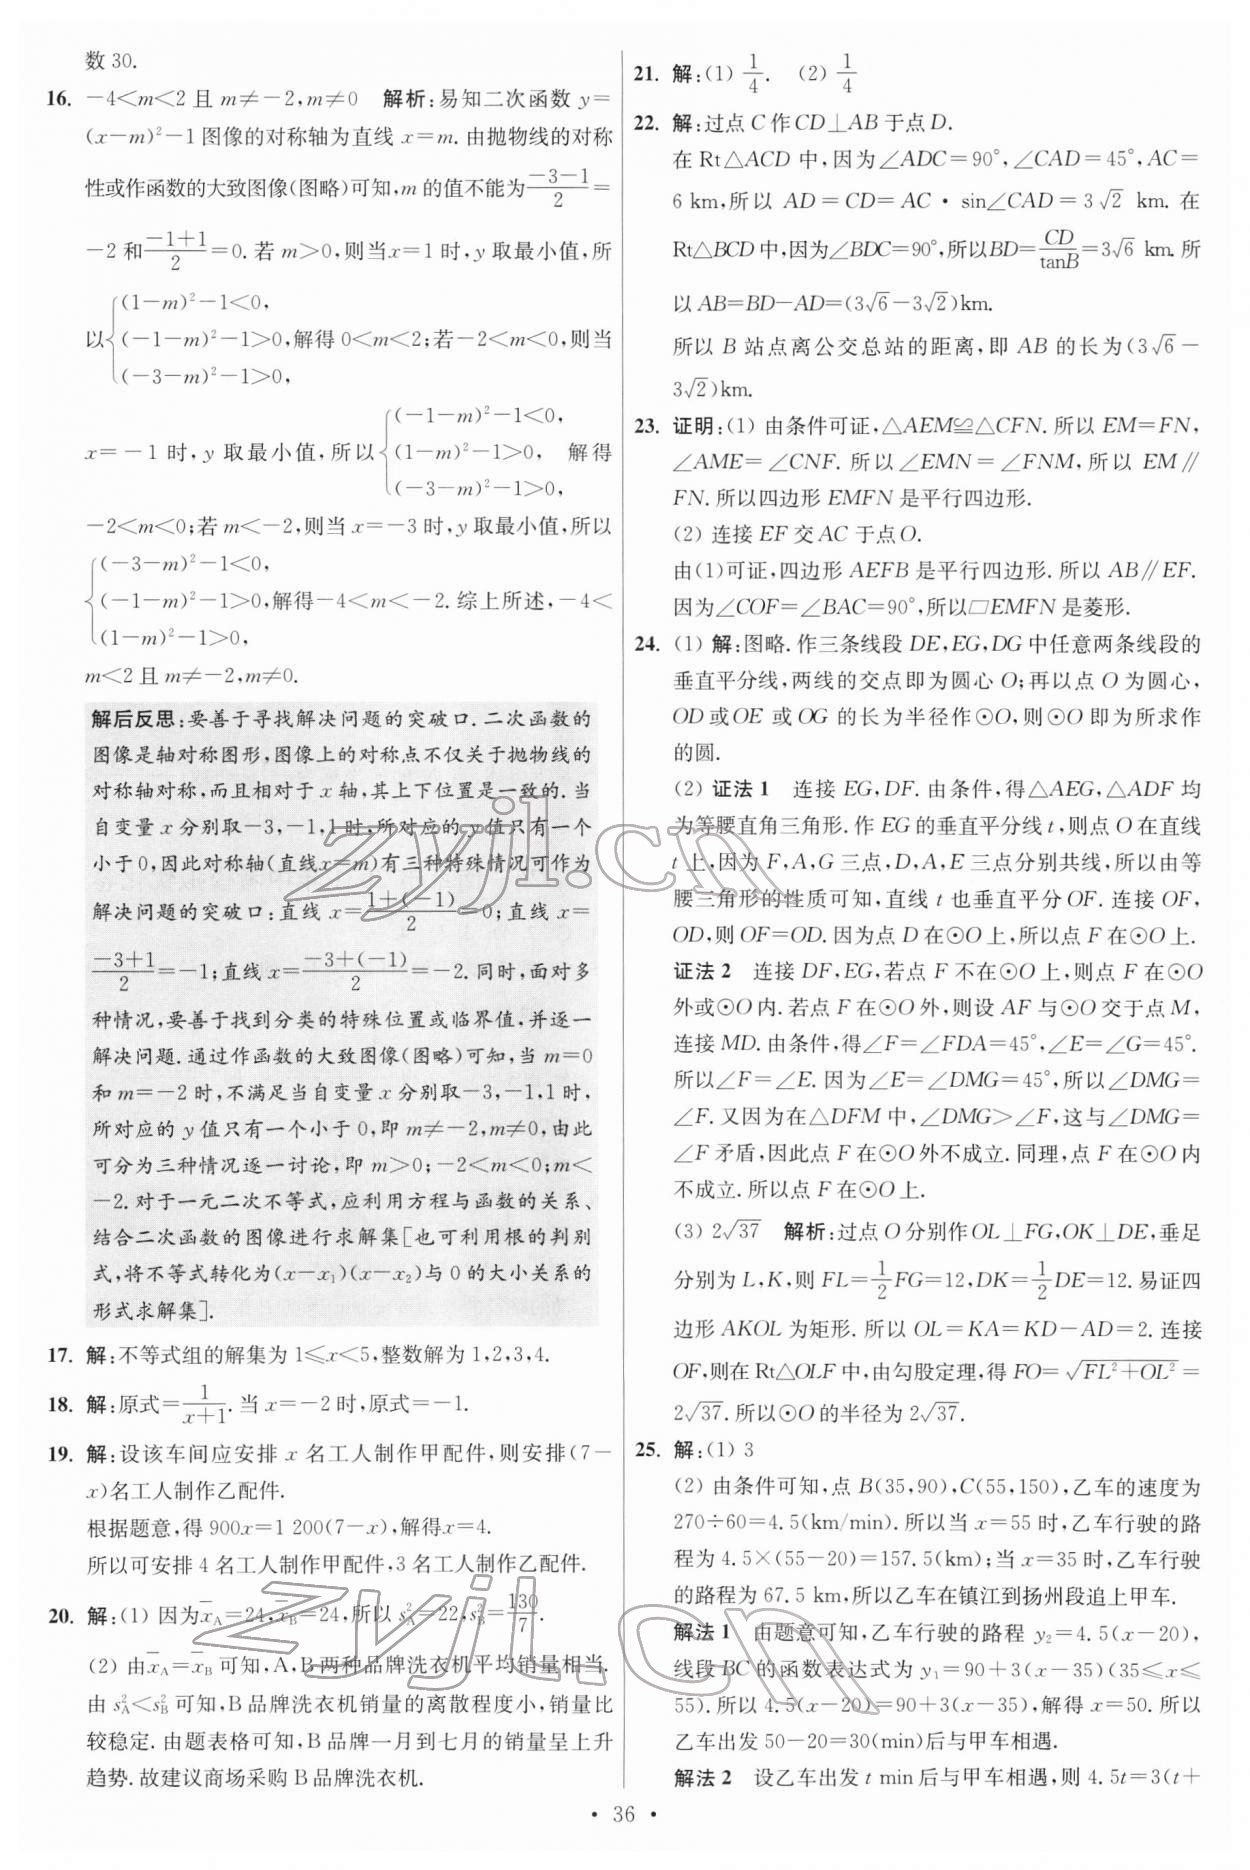 数30.
16. －4＜m＜2且m≠－2,m≠0　解析:易知二次函数y＝
(x－m)²－1图像的对称轴为直线x＝m.由抛物线的对称
性或作函数的大致图像(图略)可知,m的值不能为(－3－1)/2＝
－2和(－1＋1)/2＝0.若m＞0,则当x＝1时,y取最小值,所
以{(1－m)²－1＜0,
(－1－m)²－1＞0,解得0＜m＜2;若－2＜m＜0,则当
(－3－m)²－1＞0,
x＝－1时,y取最小值,所以{(－1－m)²－1＜0,
(1－m)²－1＞0,　解得
(－3－m)²－1＞0,
－2＜m＜0;若m＜－2,则当x＝－3时,y取最小值,所以
{(－3－m)²－1＜0,
(－1－m)²－1＞0,解得－4＜m＜－2.综上所述,－4＜
(1－m)²－1＞0,
m＜2且m≠－2,m≠0.
解后反思:要善于寻找解决问题的突破口.二次函数的
图像是轴对称图形,图像上的对称点不仅关于抛物线的
对称轴对称,而且相对于x轴,其上下位置是一致的.当
自变量x分别取－3,－1,1时,所对应的y值只有一个
小于0,因此对称轴(直线x＝m)有三种特殊情况可作为
解决问题的突破口:直线x＝(1＋(－1))/2＝0;直线x＝
(－3＋1)/2＝－1;直线x＝(－3＋(－1))/2＝－2.同时,面对多
种情况,要善于找到分类的特殊位置或临界值,并逐一
解决问题.通过作函数的大致图像(图略)可知,当m＝0
和m＝－2时,不满足当自变量x分别取－3,－1,1时,
所对应的y值只有一个小于0,即m≠－2,m≠0,由此
可分为三种情况逐一讨论,即m＞0;－2＜m＜0;m＜
－2.对于一元二次不等式,应利用方程与函数的关系、
结合二次函数的图像进行求解集[也可利用根的判别
式,将不等式转化为(x－x₁)(x－x₂)与0的大小关系的
形式求解集].
17. 解:不等式组的解集为1≤x＜5,整数解为1,2,3,4.
18. 解:原式＝1/(x＋1).当x＝－2时,原式＝－1.
19. 解:设该车间应安排x名工人制作甲配件,则安排(7－
x)名工人制作乙配件.
根据题意,得900x＝1 200(7－x),解得x＝4.
所以可安排4名工人制作甲配件,3名工人制作乙配件.
20. 解:(1) 因为x̄_A＝24,x̄_B＝24,所以s²_A＝22,s²_B＝130/7.
(2) 由x̄_A＝x̄_B可知,A,B两种品牌洗衣机平均销量相当.
由s²_A＜s²_B可知,B品牌洗衣机销量的离散程度小,销量比
较稳定.由题表格可知,B品牌一月到七月的销量呈上升
趋势.故建议商场采购B品牌洗衣机.
21. 解:(1) 1/4.　(2) 1/4
22. 解:过点C作CD⊥AB于点D.
在Rt△ACD中,因为∠ADC＝90°,∠CAD＝45°,AC＝
6 km,所以AD＝CD＝AC·sin∠CAD＝3√2 km.在
Rt△BCD中,因为∠BDC＝90°,所以BD＝CD/tanB＝3√6 km.所
以AB＝BD－AD＝(3√6－3√2)km.
所以B站点离公交总站的距离,即AB的长为(3√6－
3√2)km.
23. 证明:(1) 由条件可证,△AEM≌△CFN.所以EM＝FN,
∠AME＝∠CNF.所以∠EMN＝∠FNM,所以EM∥
FN.所以四边形EMFN是平行四边形.
(2) 连接EF交AC于点O.
由(1)可证,四边形AEFB是平行四边形.所以AB∥EF.
因为∠COF＝∠BAC＝90°,所以□EMFN是菱形.
24. (1) 解:图略.作三条线段DE,EG,DG中任意两条线段的
垂直平分线,两线的交点即为圆心O;再以点O为圆心,
OD或OE或OG的长为半径作⊙O,则⊙O即为所求作
的圆.
(2) 证法1　连接EG,DF.由条件,得△AEG,△ADF均
为等腰直角三角形.作EG的垂直平分线t,则点O在直线
t上,因为F,A,G三点,D,A,E三点分别共线,所以由等
腰三角形的性质可知,直线t也垂直平分OF.连接OF,
OD,则OF＝OD.因为点D在⊙O上,所以点F在⊙O上.
证法2　连接DF,EG,若点F不在⊙O上,则点F在⊙O
外或⊙O内.若点F在⊙O外,则设AF与⊙O交于点M,
连接MD.由条件,得∠F＝∠FDA＝45°,∠E＝∠G＝45°.
所以∠F＝∠E.因为∠E＝∠DMG＝45°,所以∠DMG＝
∠F.又因为在△DFM中,∠DMG＞∠F,这与∠DMG＝
∠F矛盾,因此点F在⊙O外不成立.同理,点F在⊙O内
不成立.所以点F在⊙O上.
(3) 2√37　解析:过点O分别作OL⊥FG,OK⊥DE,垂足
分别为L,K,则FL＝1/2FG＝12,DK＝1/2DE＝12.易证四
边形AKOL为矩形.所以OL＝KA＝KD－AD＝2.连接
OF,则在Rt△OLF中,由勾股定理,得FO＝√(FL²＋OL²)＝
2√37.所以⊙O的半径为2√37.
25. 解:(1) 3
(2) 由条件可知,点B(35,90),C(55,150),乙车的速度为
270÷60＝4.5(km/min).所以当x＝55时,乙车行驶的路
程为4.5×(55－20)＝157.5(km);当x＝35时,乙车行驶
的路程为67.5 km,所以乙车在镇江到扬州段追上甲车.
解法1　由题意可知,乙车行驶的路程y₂＝4.5(x－20),
线段BC的函数表达式为y₁＝90＋3(x－35)(35≤x≤
55).所以4.5(x－20)＝90＋3(x－35),解得x＝50.所以
乙车出发50－20＝30(min)后与甲车相遇.
解法2　设乙车出发t min后与甲车相遇,则4.5t＝3(t＋
·36·
zyjl.cn
zyjl.cn